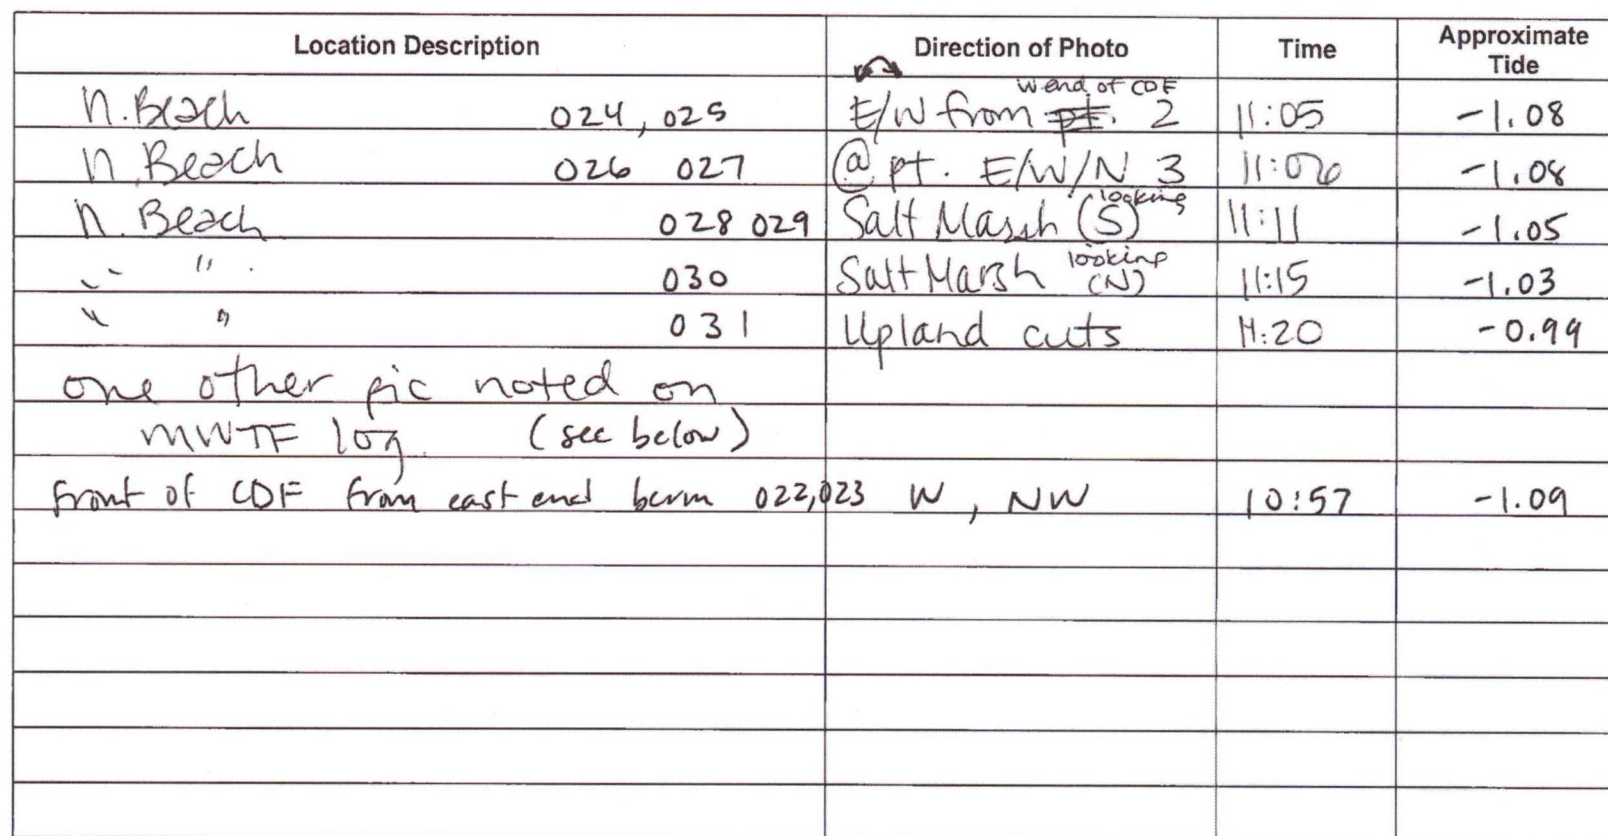 Location Description Direction of Photo Time Approximate Tide
N. Beach 024, 025 E/W from W end of CDF 2 11:05 -1.08
N. Beach 026 027 @ pt. E/W/N 3 11:06 -1.08
N. Beach 028 029 Salt Marsh (S) looking 11:11 -1.05
" " 030 Salt Marsh looking (N) 11:15 -1.03
" " 031 Upland cuts 11:20 -0.99
one other pic noted on
MWTF log (see below)
front of CDF from east end berm 022,023 W, NW 10:57 -1.09